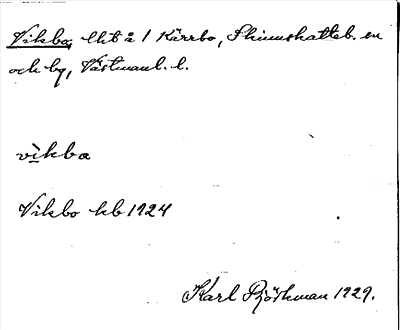 Vikbo, lht å 1 Kärrbo, Skinnskatteb. sn
och bg, Västmanl. l.
vikba
Vikbo kb 1924
Karl Björkman 1929.